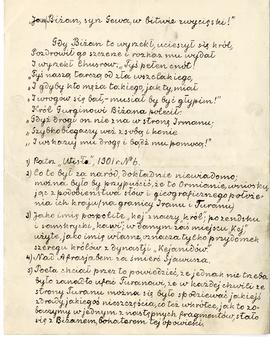 Jam Biżan, syn Gewa, w bitwie zwycięski!"
Gdy Biżan to wyrzekł, ucieszył się król,
Pozdrowił go szczerze i rozkaz mu wydał
I wyrzekł Chusrow: „Tyś pełen cnót!
Tyś naszą tarczą od zła wszelakiego,
I gdyby kto męża takiego, jak ty, miał
I wrogów się bał, musiał by być głupim!"
Król Gurginowi Biżana polecił:
Gdyż drogi on nie zna w stronę Irmanu;
Szybkobiegacy weź z sobą i konie
„I wskazuj mu drogi i bądź mu pomocą!"
1) Patrz „Wisła", 1901 r. № 6.
2) Co to był za naród, dokładnie niewiadomo;
można było by przypuścić, że to Ormianie, wniosku-
jąc z podobieństwa słów i geograficznego położe-
nia ich kraju (na granicy Iranu i Turanu)
3) Jako imię pospolite „kej" znaczy król; po zendsku
i sanskrycku, kawi; w danym zaś miejscu „Kej"
użyte, jako imię własne, oznacza tylko przydomek
szeregu królów z dynastji „Kejanidów"
4) Nad Afrasjabem za śmierć Sjawusza.
5) Poeta chciał przez to powiedzieć, że jednak nie trzeba
było zanadto ufać Turanowi, że w każdej chwili ze
strony Turanu można się było spodziewać jakiejś
zdrady, jakiegoś nieszczęścia, co też wkrótce, jak to zo-
baczymy w jednym z następnych fragmentów, stało
się z Biżanem, bohaterem tej opowieści.